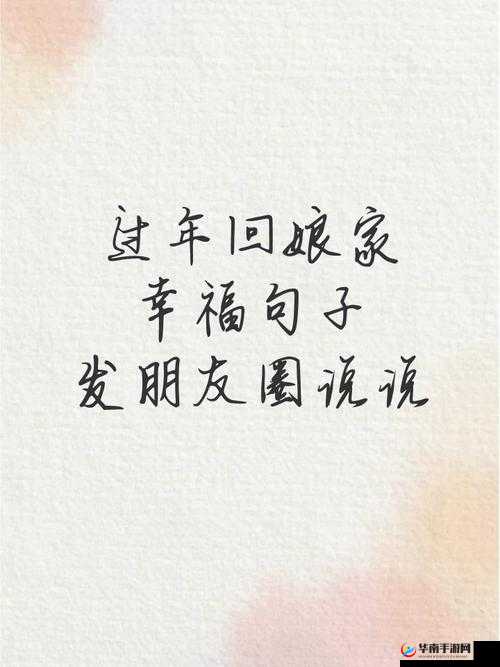 过年回娘家
幸福句子
发朋友圈说说
华南手游网